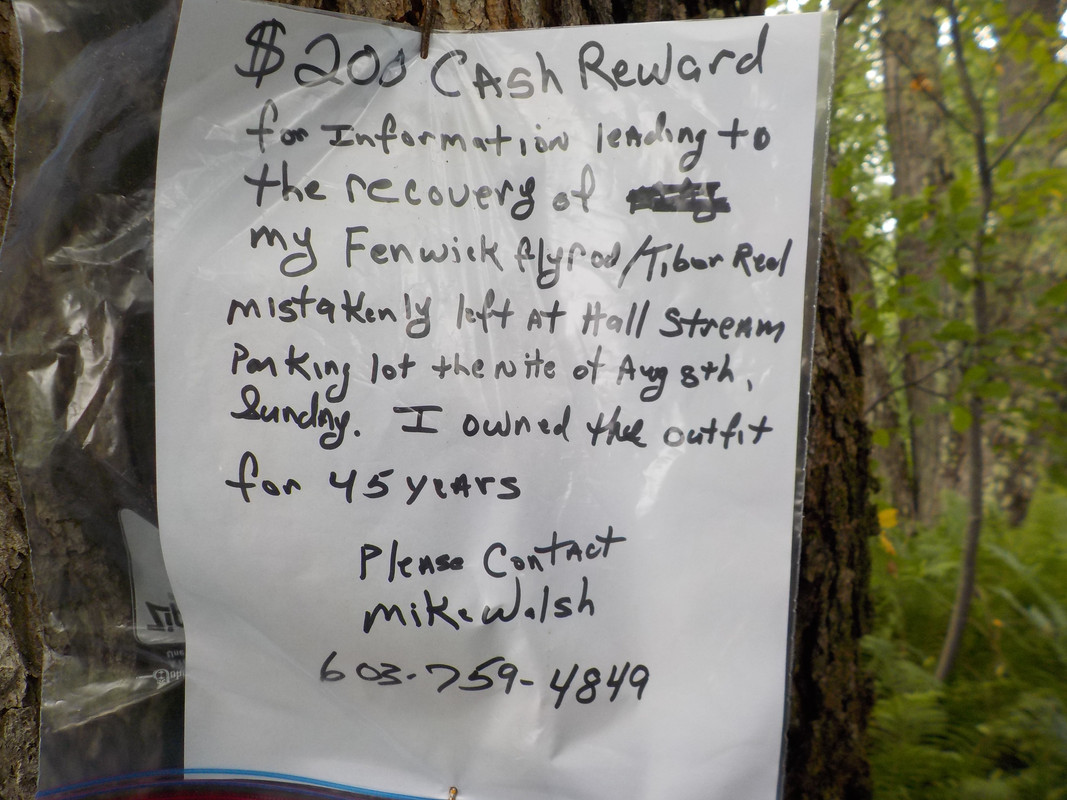 $200 Cash Reward
for Information leading to
the recovery of
my Fenwick flyrod/Tibor Reel
mistakenly left at Hall Stream
Parking lot the nite of Aug 8th,
Sunday. I owned the outfit
for 45 years
Please Contact
Mike Walsh
603-759-4849